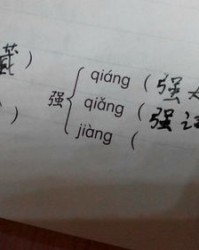 qiáng（强大
强 qiǎng（强
jiàng（
）
）